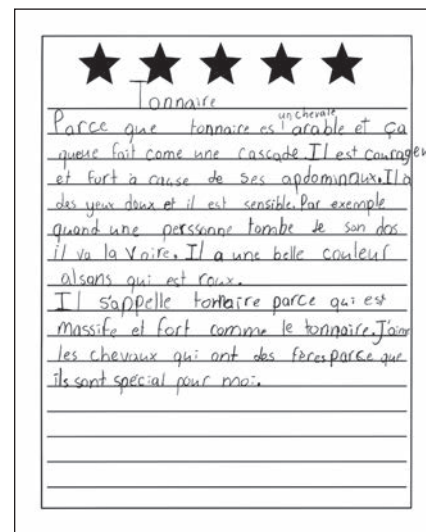 Tonnaire
Parce que tonnaire es un chevale arable et ça
queue fait come une cascade. Il est courageu
et fort à cause de ses apdominaux. Il a
des yeux doux et il est sensible. Par exemple
quand une perssonne tombe de son dos
il va la voire. Il a une belle couleur
alsans qui est roux.
Il s'appelle tonnaire parce qui est
massife et fort comme le tonnaire. J'aime
les chevaux qui ont des fères parce que
ils sont spécial pour moi.